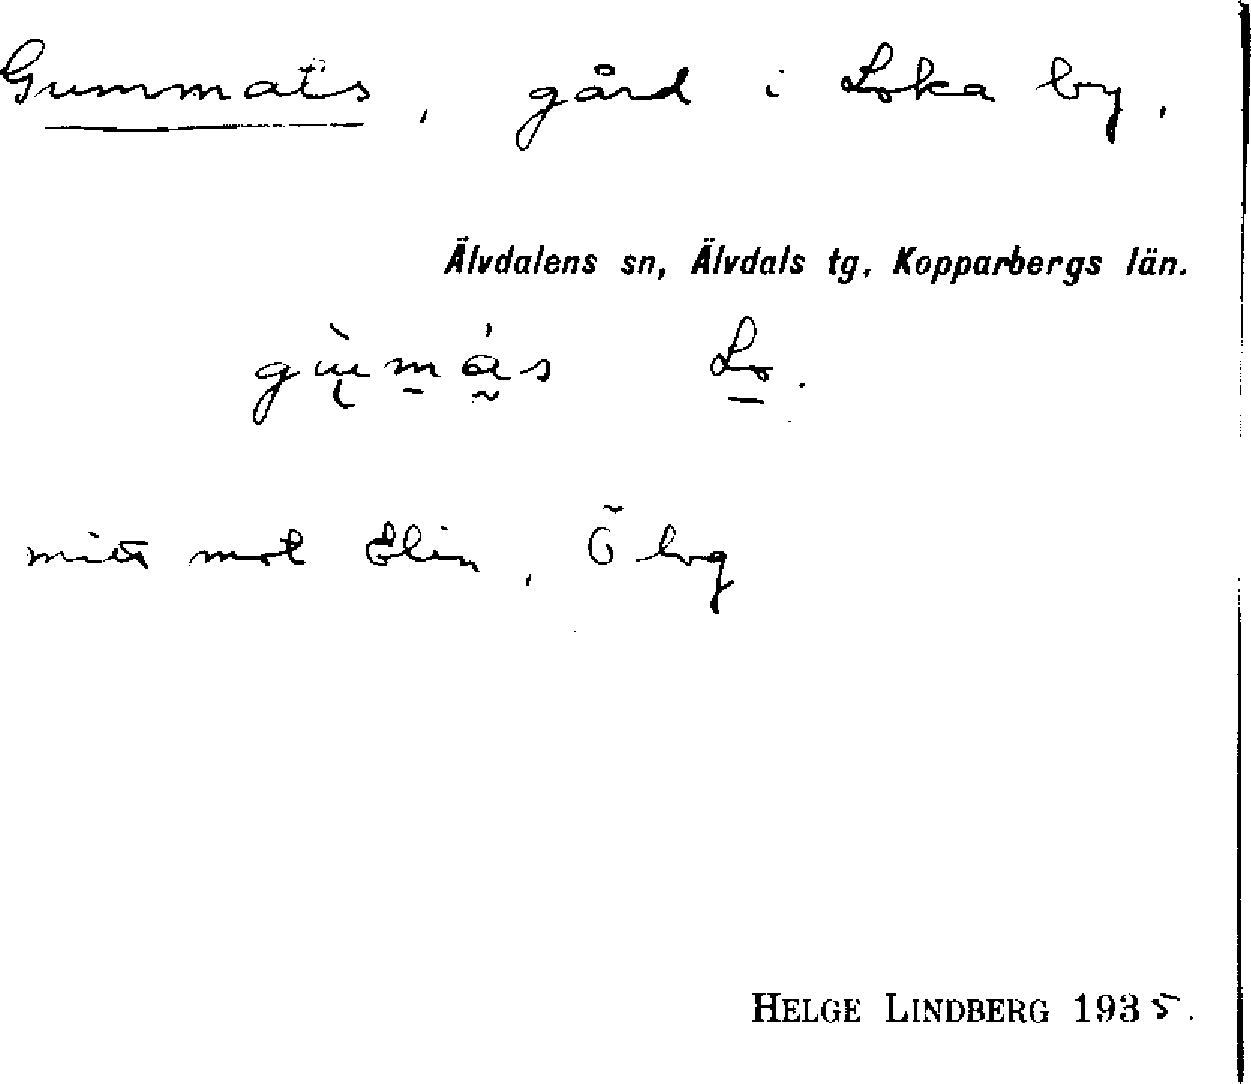 Gummats, gård i Loka by.
Älvdalens sn, Älvdals tg, Kopparbergs län.
Lo.
mitt mot Elin, Ö bvg
HELGE LINDBERG 1935.